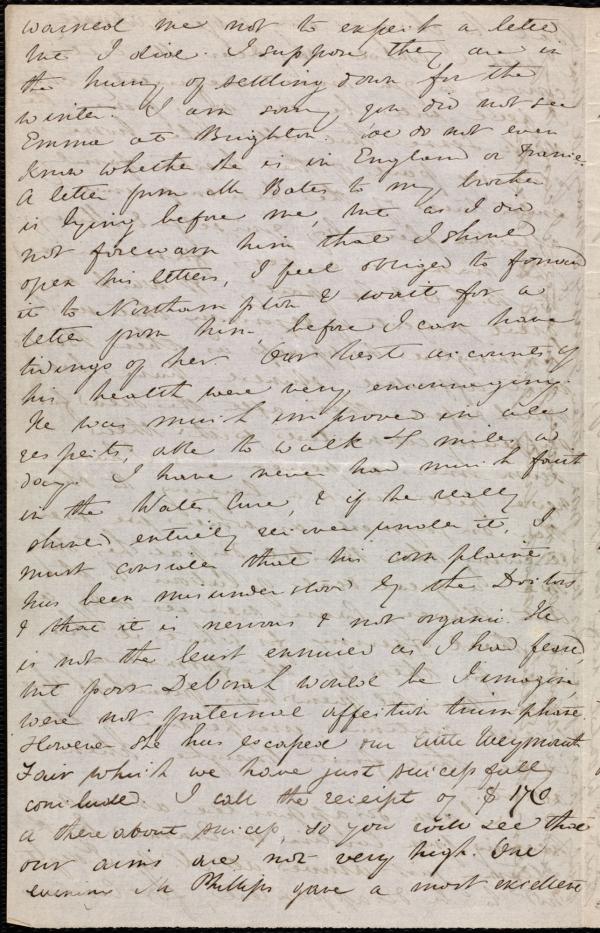 warned me not to expect a letter
but I did. I suppose they are in
the hurry of settling down for the
winter. I am sorry you did not see
Emma at Brighton. We do not even
know whether she is in England or France.
A letter from Mr Bates to my brother
is lying before me, but as I did
not forewarn him that I should
open his letters, I feel obliged to forward
it to Northampton & wait for a
letter from him, before I can have
tidings of her. Our last accounts of
his health were very encouraging.
He was much improved in all
respects, able to walk 4 miles a
day. I have never had much faith
in the Water Cure, & if he really
should entirely recover under it, I
must consider that his complaint
has been misunderstood by the Doctors
& that it is nervous & not organic. He
is not the least ennuied as I had feared,
but poor Deborah would be I imagine,
were not fraternal affection triumphant.
However she has escaped our little Weymouth
Fair which we have just successfully
concluded. I call the receipt of $ 170
or thereabout success, so you will see that
our aims are not very high. One
evening Mr Phillips gave a most excellent